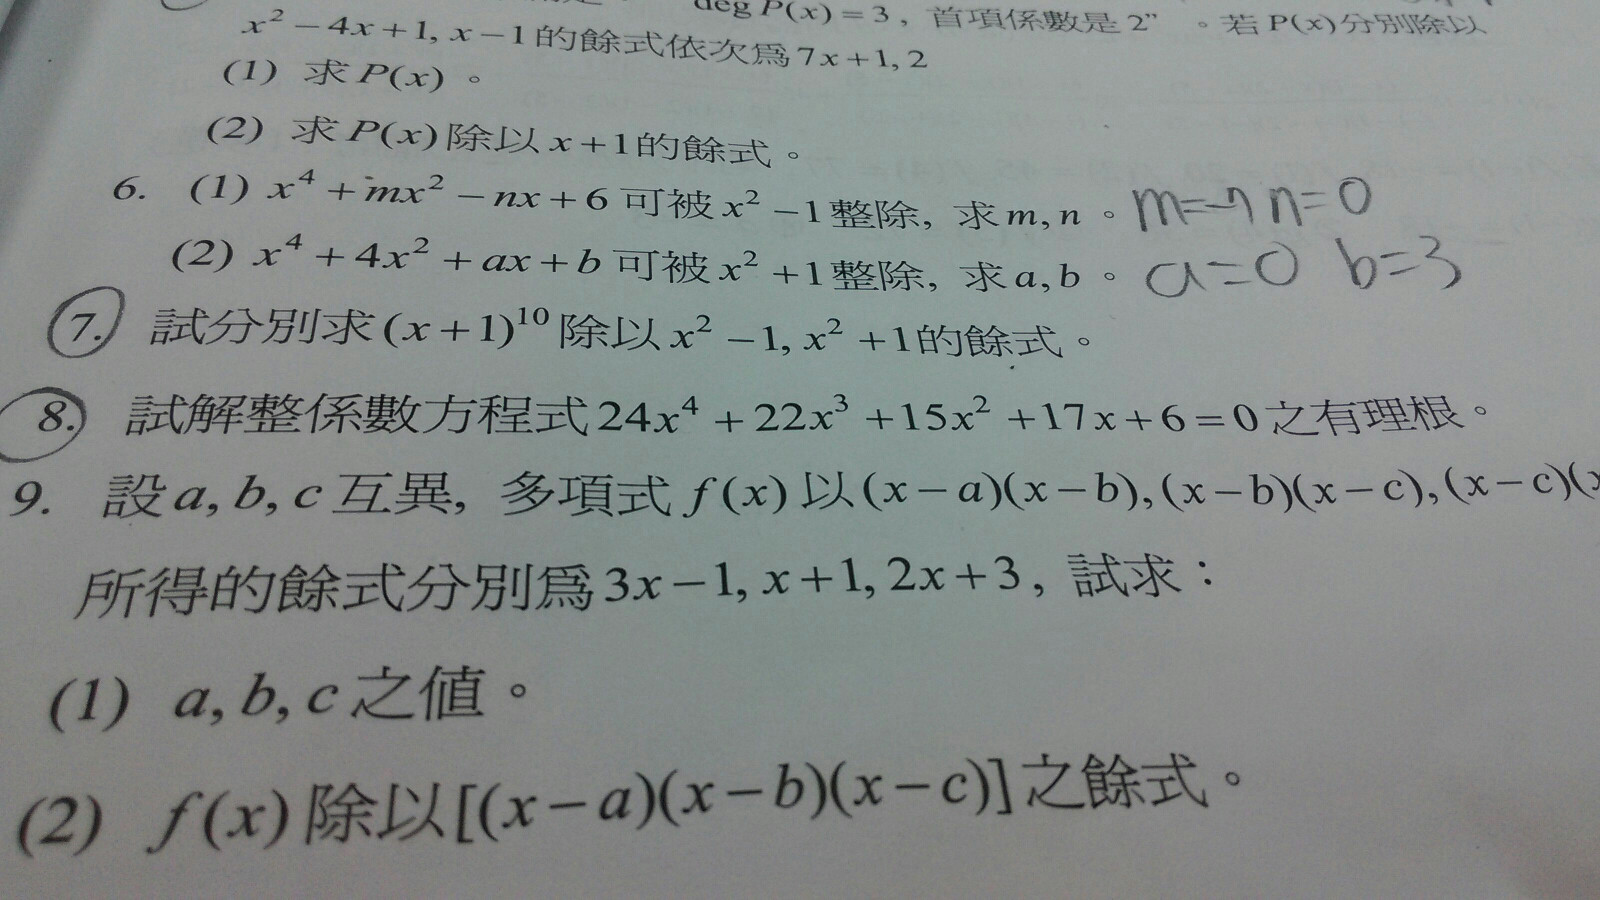 deg P(x) = 3, 首項係數是 2” 。若 P(x) 分別除以
x² − 4x + 1, x − 1 的餘式依次為 7x + 1, 2
(1) 求 P(x) 。
(2) 求 P(x) 除以 x + 1 的餘式。
6. (1) x⁴ + mx² − nx + 6 可被 x² − 1 整除, 求 m, n 。 m=-7 n=0
(2) x⁴ + 4x² + ax + b 可被 x² + 1 整除, 求 a, b 。 a=0 b=3
7. 試分別求 (x + 1)¹⁰ 除以 x² − 1, x² + 1 的餘式。
8. 試解整係數方程式 24x⁴ + 22x³ + 15x² + 17x + 6 = 0 之有理根。
9. 設 a, b, c 互異, 多項式 f(x) 以 (x − a)(x − b), (x − b)(x − c), (x − c)(x
所得的餘式分別為 3x − 1, x + 1, 2x + 3, 試求：
(1) a, b, c 之值。
(2) f(x) 除以 [(x − a)(x − b)(x − c)] 之餘式。